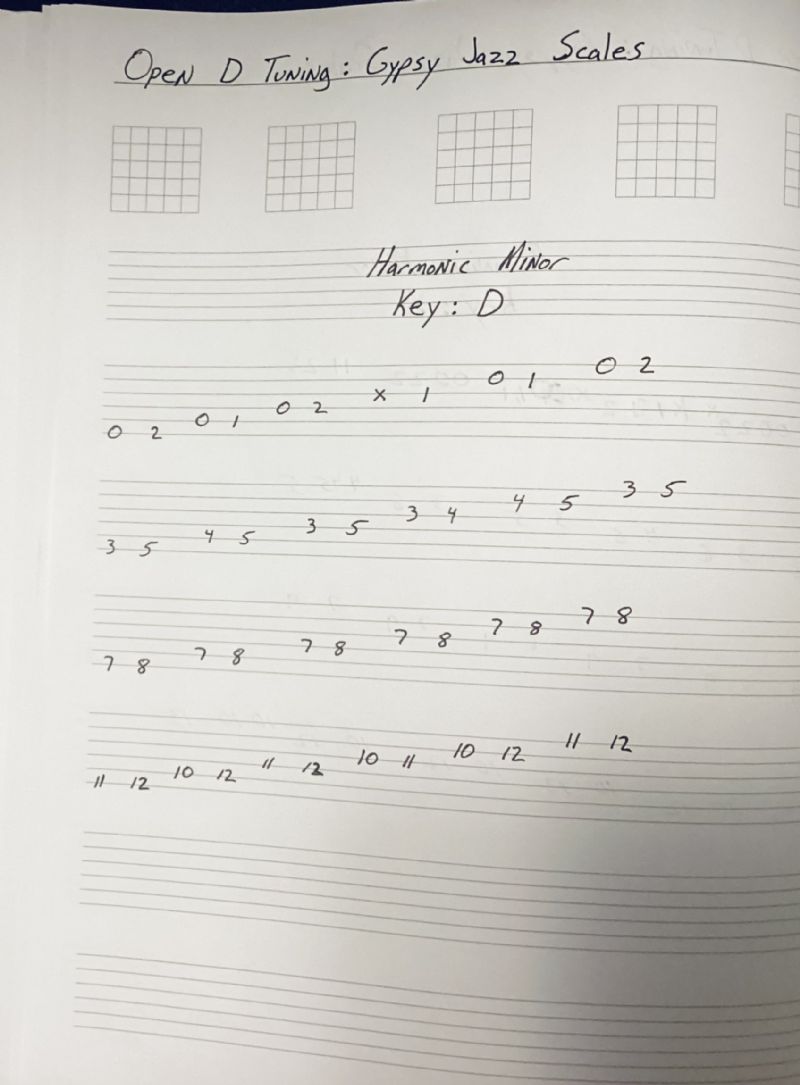 Open D Tuning: Gypsy Jazz Scales
Harmonic Minor
Key: D
0 2 0 1 0 2 x 1 0 1 0 2
3 5 4 5 3 5 3 4 4 5 3 5
7 8 7 8 7 8 7 8 7 8 7 8
11 12 10 12 11 12 10 11 10 12 11 12